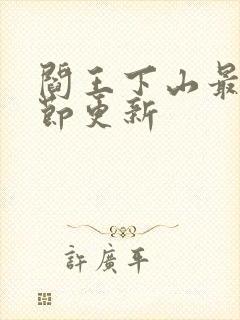 閻王下山最
節更新
許廣平